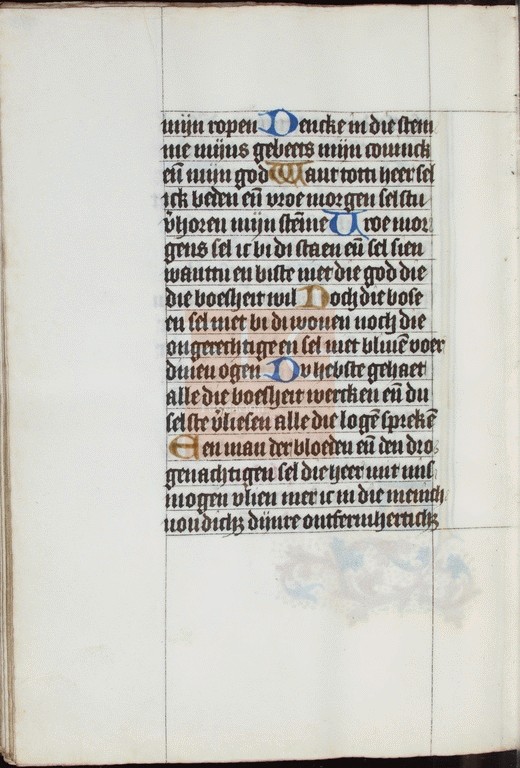 mijn ropen Dencke in die stem
me mijns gebeets mijn coninck
eñ mijn god Want tot ti heer sel
ick beden eñ vroe morgen selstu
v̄horen mijn stēme Vroe mor
gens sel ic bi di staen eñ sel sien
wanttu en biste niet die god die
die boesheit wil Noch die bose
en sel niet bi di wonen noch die
ongerechtige en sel niet blivē voer
dinen ogen Du hebste gehaet
alle die boesheit wercken eñ du
selste v̄liesen alle die logē sprekē
Een man der bloeden eñ den dro
genachtigen sel die heer
mogen mer ic in die menich
uoudich dijnre ontfermhertich